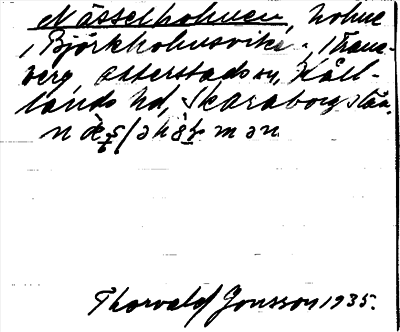 Nässelholmen, holme
i Björkholmsviken, Trans-
berg, Otterstads sn, Kål-
lands hd, Skaraborgs län.
Thorvald Jonsson 1935.